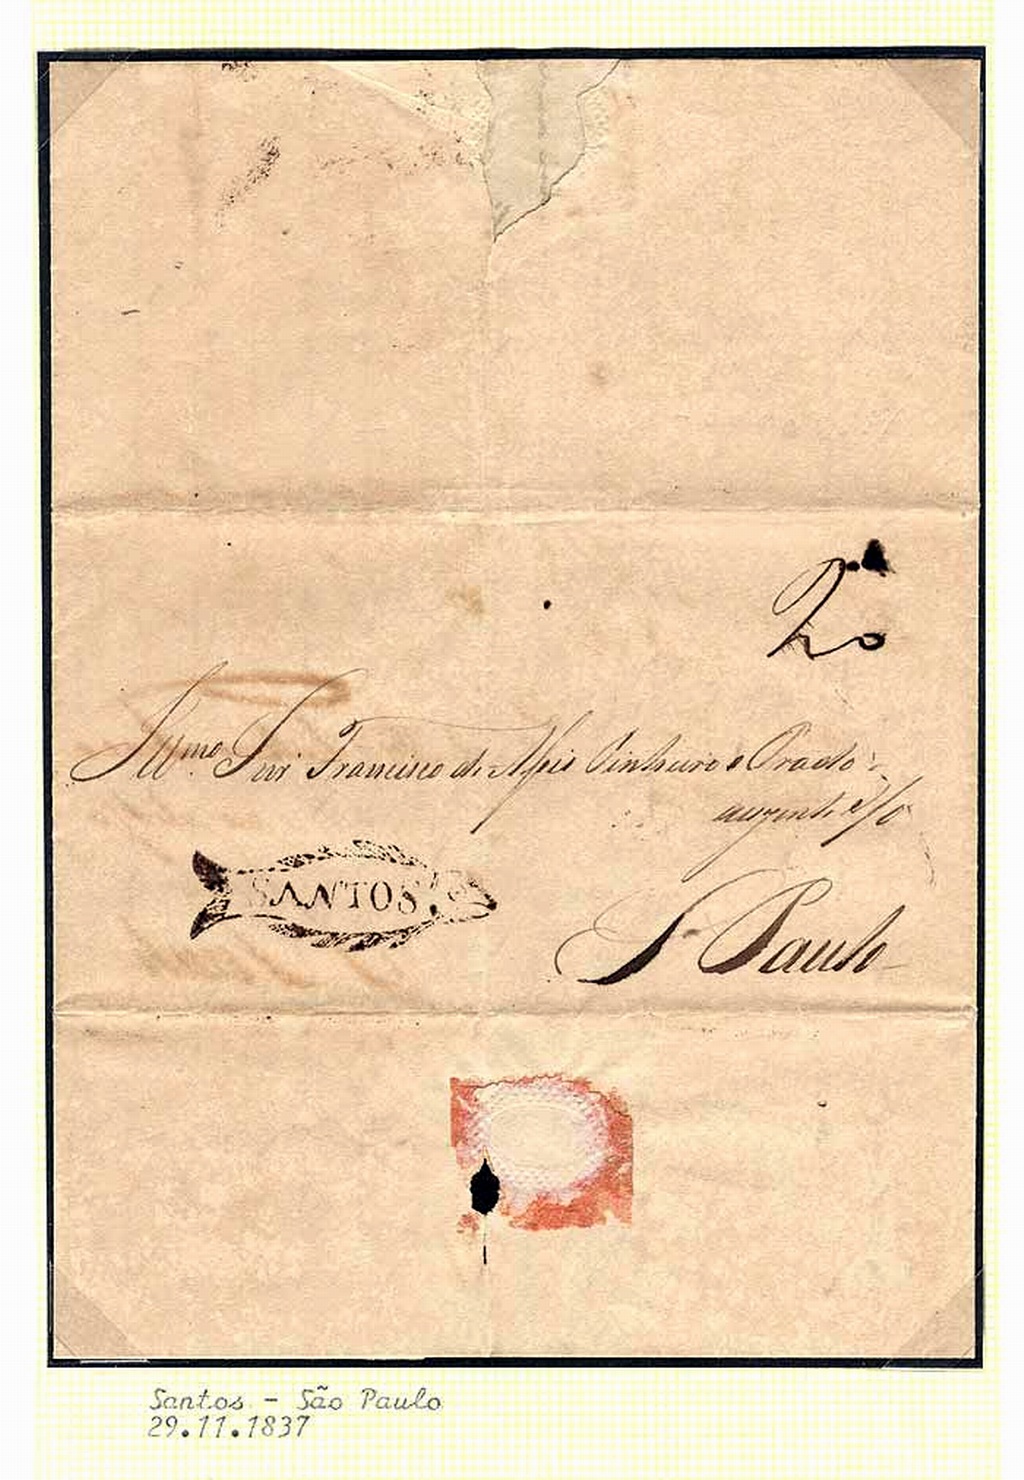 20
Illmo. Snr Francisco de Assis Pinheiro e Prado
auzente a/o
SANTOS
S. Paulo
Santos - São Paulo
29.11.1837